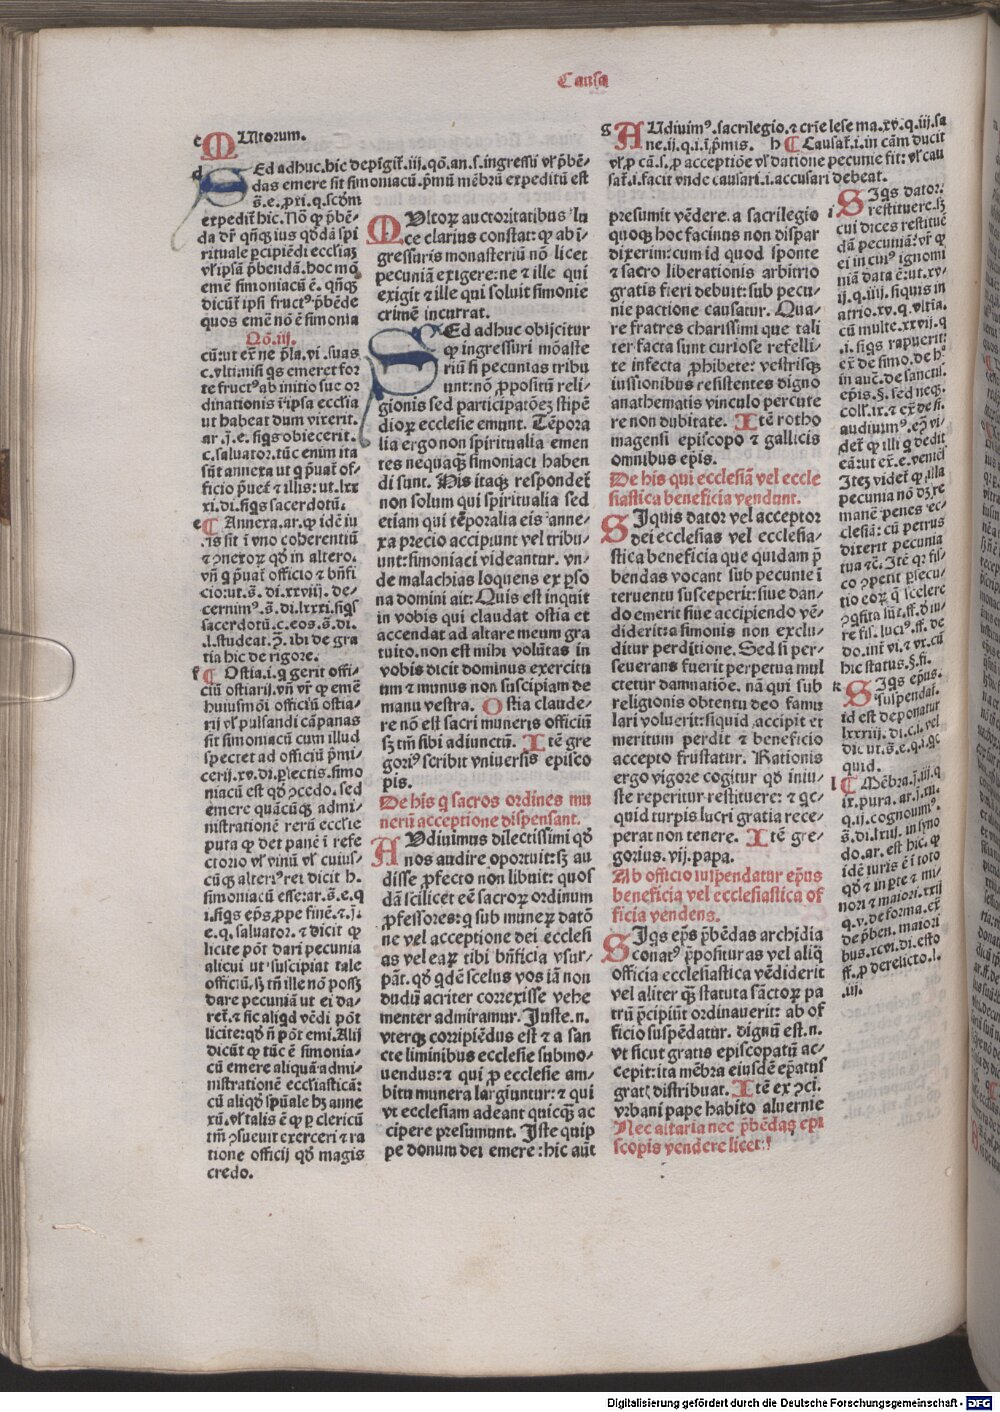 Causa
c MUltorum.
d SEd adhuc. hic depīgit̄. iij. qō. an. s. ingressu vl' p̄be⸗
das emere sit simoniacū. p̄mū mēbrū expeditū est
s̄. e. ꝓxi. q. scōm
expedit̄ hic. Nō ꝙ p̄bē⸗
da dr̄ qn̄qꝫ ius qd̓dā spi
rituale ꝑcipiēdi ecclīaꝫ
vl' ipsā p̄bendā. hoc mō
emē simoniacū ē. qn̄qꝫ
dicūt ipsi fruct⁹ p̄bēde
quos emē nō ē simonia
Qō. iij.
cū: ut ex̄ ne p̄la. vi. suas
c. vlti: nisi qs emeret for
te fruct⁹ ab initio sue or
dinationis ī ipsa ecclīa
ut habeat dum vixerit.
ar. j̄. e. siqs obiecerit.
c. saluator. tūc enim ita
sūt annexa ut q p̄uat̄ of⸗
ficio p̄uet̄ ⁊ illis: ut. lxx
xi. di. siqs sacerdotū.
e ¶ Annexa. ar. ꝙ idē iu
.is sit ī vno coherentiū
⁊ ꝯnexoꝝ qd̓ in altero.
vn̄ q p̄uat̄ officio ⁊ bn̄fi
cio: ut. s̄. di. xxviij. de⸗
cernim⁹. s̄. di. lxxxi. siqs
sacerdotū. c. eos. s̄. di.
.l. studeat. ꝫ. ibi de gra
tia hic de rigore.
f ¶ Ostia. i. q gerit offi⸗
ciū ostiarij. vn̄ vr̄ ꝙ emē
huiusmōi officiū ostia⸗
rij vl' pulsandi cāpanas
sit simoniacū cum illud
spectet ad officiū p̄mi⸗
cerij. xv. di. ꝑlectis. simo
niacū est qd̓ ꝯcedo. sed
emere quācūqꝫ admi⸗
nistrationē rerū ecclīe
puta ꝙ det panē ī refe
ctorio vl' vinū vl' cuius⸗
cūqꝫ alteri⁹ rei dicit h.
simoniacū esse: ar. s̄. e. q
i. siqs ep̄s, ꝓpe finē. ⁊. j̄.
e. q. saluator. ⁊ dicit ꝙ
licite pōt dari pecunia
alicui ut suscipiat tale
officiū, sꝫ tn̄ ille nō poss̄
dare pecuniā ut ei da⸗
ret̄. ⁊ sic aliqd vēdi pōt
licite: qd̓ n̄ pōt emi. Alij
dicūt ꝙ tūc ē simonia⸗
cū emere aliquā admi⸗
nistrationē ecclīasticā:
cū aliqd̓ spūale hꝫ anne
xū. vl' talis ē ꝙ p clericū
tm̄ ꝯsueuit exerceri ⁊ ra
tione officij qd̓ magis
credo.
MUltoꝝ auctoritatibus lu
ce clarius constat: ꝙ ab ī⸗
gressuris monasteriū nō licet
pecuniā exigere: ne ⁊ ille qui
exigit ⁊ ille qui soluit simonie
crimē incurrat.
SEd adhuc obijcitur
ꝙ ingressuri mōaste
riū si pecunias tribu
unt: nō ꝓpositū reli⸗
gionis sed participatōeꝫ stipē
dioꝝ ecclesie emunt. Tēpora
lia ergo non spiritualia emen
tes nequaqꝫ simoniaci haben
di sunt. His itaqꝫ respondet̄
non solum qui spiritualia sed
etiam qui tēporalia eis anne⸗
xa precio accipiunt vel tribu
unt: simoniaci videantur. vn⸗
de malachias loquens ex ꝑso
na domini ait: Quis est inquit
in vobis qui claudat ostia et
accendat ad altare meum gra
tuito. non est mihi volūtas in
vobis dicit dominus exercitu
um ⁊ munus non suscipiam de
manu vestra. Ostia claude⸗
re nō est sacri muneris officiū
sꝫ tm̄ sibi adiunctū. Itē gre
gori⁹ scribit vniuersis episco
pis.
De his q sacros ordines mu
nerū acceptione dispensant.
AUdiuimus dilectissimi qd̓
nos audire oportuit: sꝫ au
disse ꝓfecto non libuit: quos
dā scilicet eē sacroꝝ ordinum
ꝓfessores: q sub muneꝝ datō
ne vel acceptione dei ecclesi
as vel eaꝝ tibi bn̄ficia vsur⸗
pāt. qd̓ qdē scelus vos iā non
dudū acriter correxisse vehe
menter admiramur. Juste. n.
vterqꝫ corripiēdus est ⁊ a san
cte liminibus ecclesie submo⸗
uendus: ⁊ qui ꝓ ecclesie am⸗
bitu munera largiuntur: ⁊ qui
vt ecclesiam adeant quicqꝫ ac
cipere presumunt. Iste quip
pe donum dei emere: hic aūt
g AUdiuim⁹. sacrilegio. ⁊ crīe lese ma. xv. q. iij. sa
ne. ij. q. i. ī p̄mis. h ¶ Causat̄. i. in cām ducit
vl'. ꝑ cā. s. ꝓ acceptiōe vl' datione pecunie fit: vl' cau
sat̄. i. facit vnde causari. i. accusari debeat.
presumit vēdere. a sacrilegio
quoqꝫ hoc facinus non dispar
dixerim: cum id quod sponte
⁊ sacro liberationis arbitrio
gratis fieri debuit: sub pecu⸗
nie pactione causatur. Qua⸗
re fratres charissimi que tali
ter facta sunt curiose refelli⸗
te infecta ꝓhibete: vestrisqꝫ
iussionibus resistentes digno
anathematis vinculo percute
re non dubitate. Itē rotho
magensi episcopo ⁊ gallicis
omnibus ep̄is.
De his qui ecclesiā vel eccle
siastica beneficia vendunt.
SIquis dator vel acceptor
dei ecclesias vel ecclesia⸗
stica beneficia que quidam p̄
bendas vocant sub pecunie ī
teruentu susceperit: siue dan⸗
do emerit siue accipiendo vē⸗
diderit: a simonis non exclu⸗
ditur perditione. Sed si per⸗
seuerans fuerit perpetua mul
ctetur damnatiōe. nā qui sub
religionis obtentu deo famu
lari voluerit: siquid accipit et
meritum perdit ⁊ beneficio
accepto frustatur. Rationis
ergo vigore cogitur qd̓ iniu⸗
ste reperitur restituere: ⁊ qc⸗
quid turpis lucri gratia rece⸗
perat non tenere. Itē gre⸗
gorius. vij. papa.
Ab officio suspendatur ep̄us
beneficia vel ecclesiastica of
ficia vendens.
SIqs ep̄s p̄bēdas archidia
conat⁹ p̄posituras vel aliq̄
officia ecclesiastica vēdiderit
vel aliter qꝫ statuta sāctoꝝ pa
trū p̄cipiūt ordinauerit: ab of
ficio suspēdatur. dignū est. n.
vt sicut gratis episcopatū ac⸗
cepit: ita mēbra eiusdē ep̄atus
grat̄ distribuat. Itē ex ꝯci.
vrbani pape habito aluernie
Nec altaria nec p̄bēdas epi
scopis vendere licet:!
i SIqs dator.
restituere. sꝫ
cui dices restituē
dā pecuniā: vr̄ ꝙ
ei in cui⁹ ignomi
niā data ē: ut. xv⸗
ij. q. iiij. siquis in
atrio. xv. q. vltia.
cū multe. xxvij. q
.i. siqs rapuerit:
ex̄ de simo. de h⁹
in auc̄. de sanctis.
ep̄is. §. sed neqꝫ.
coll. ix. ⁊ ex̄ de si.
audiuim⁹. cꝫ vi⸗
det̄ ꝙ illi q dedit
eā: ut ex̄. e. veniēs
Iteꝫ videt̄ ꝙ illa
pecunia nō dꝫ re
manē penes ec⸗
clesiā: cū petrus
dixerit pecunia
tua ⁊c̄. Itē q: fis⸗
co ꝯpetit ꝑsecu⸗
tio eoꝝ q scelere
ꝯqsita sūt. ff. d̓ iu⸗
re fis. luci⁹. ff. de
do. ini vi. ⁊ vx. cū
hic status. §. fi.
k SIqs ep̄us.
suspendat̄.
id est deponatur
lxxxiij. di. c. i. vel
dic ut. s̄. e. q. i. qc
quid.
l ¶ Mēbra. j̄. iij. q
ix. pura. ar. j̄. xij.
q. ij. cognouim⁹.
s̄. di. lxiij. in syno
do. ar. est hic. ꝙ
idē iuris ē ī toto
qd̓ ⁊ in ꝑte ⁊ mi⸗
nori ⁊ maiori. xxij
q. v. de forma. ex̄
de p̄ben. maiori
bus. xcvi. di. esto
ff. ꝓ derelicto. l.
.iij.
Digitalisierung gefördert durch die Deutsche Forschungsgemeinschaft - DFG